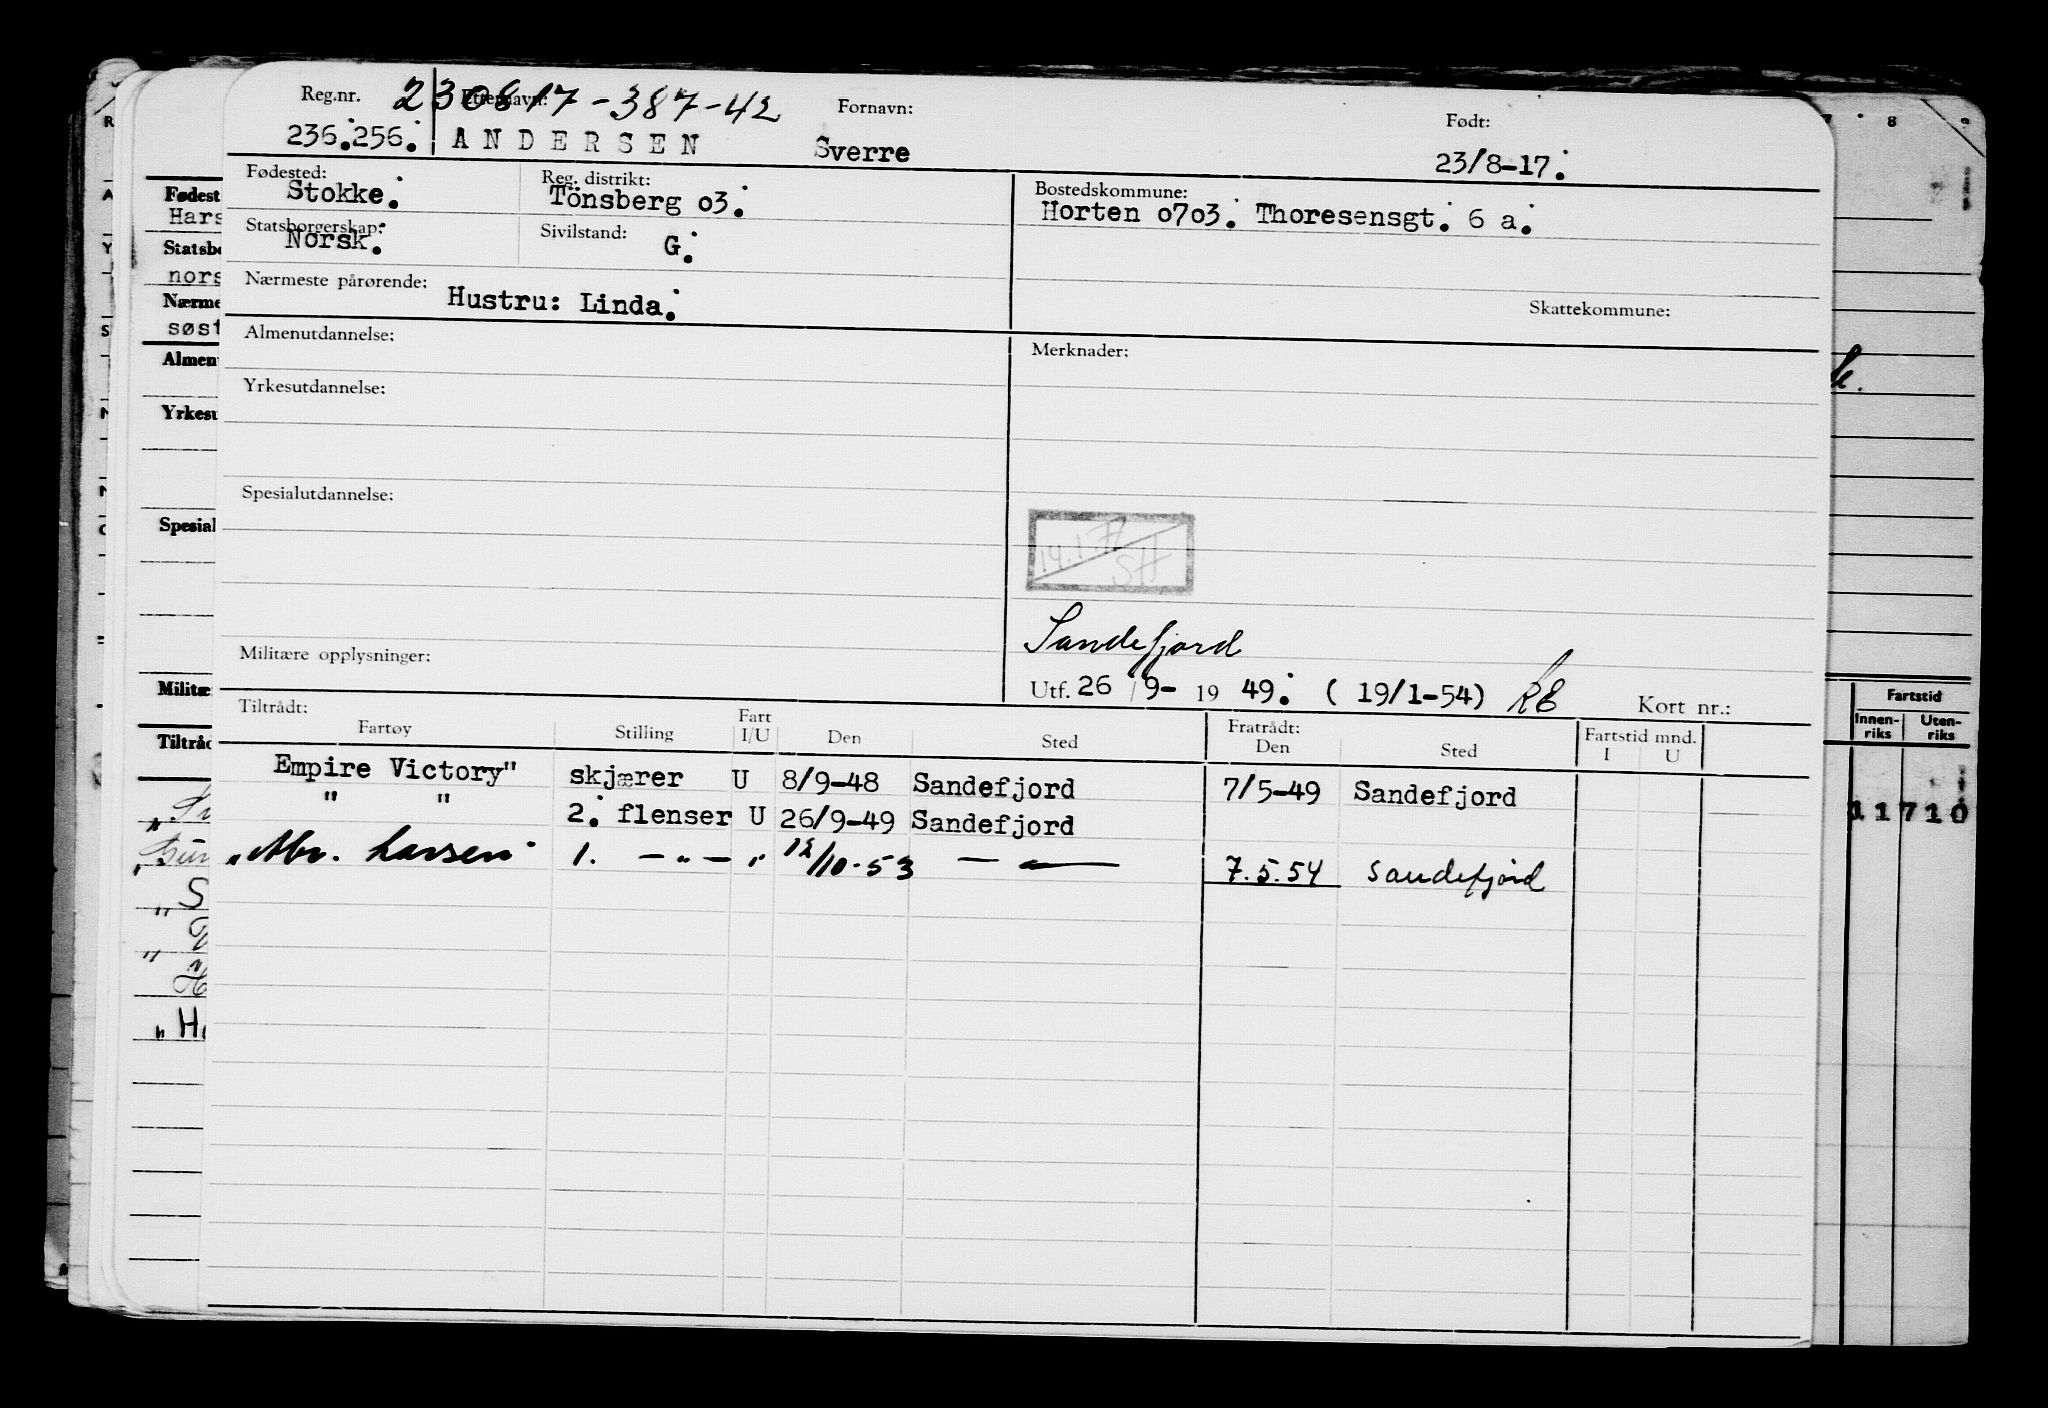 Reg.nr. 230817-387-42 Etternavn: Fornavn: Født:
236.256. ANDERSEN Sverre 23/8-17.
Fødested: Stokke. Reg. distrikt: Tönsberg 03. Bostedskommune: Horten 0703. Thoresensgt. 6 a.
Statsborgerskap: Norsk. Sivilstand: G.
Nærmeste pårørende: Hustru: Linda. Skattekommune:
Almenutdannelse: Merknader:
Yrkesutdannelse:
Spesialutdannelse:
SH
Sandefjord
Militære opplysninger: Utf. 26 / 9- 19 49. ( 19/1-54) RE Kort nr.:
Tiltrådt: Fratrådt:
Fartøy Stilling Fart I/U Den Sted Den Sted Fartstid mnd. I U
Empire Victory" skjærer U 8/9-48 Sandefjord 7/5-49 Sandefjord
" " 2. flenser U 26/9-49 Sandefjord
"Abr. Larsen" 1. -"- " 12/10-53 — — 7.5.54 Sandefjord
Fødest
Hars
Statsbo
nors
Nærme
søst
Almen
Yrkesu
Spesial
Militæ
Tiltråd
Fartstid
Innen-riks Uten-riks
11710